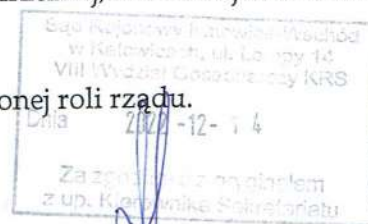 Sąd Rejonowy Katowice-Wschód
w Katowicach, ul. Lompy 14
VIII Wydział Gospodarczy KRS
onej roli rządu.
Dnia 2022 -12- 14
Za zgodność z oryginałem
z up. Kierownika Sekretariatu